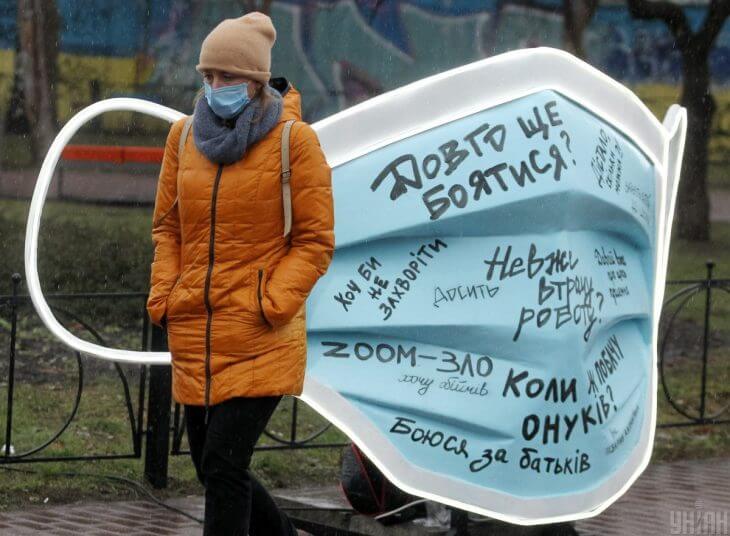 ДОВГО ЩЕ
БОЯТИСЯ?
ХОЧ БИ
НЕ
ЗАХВОРІТИ
ДОСИТЬ
НЕВЖЕ
ВТРАЧУ
РОБОТУ?
ZOOM–ЗЛО
ХОЧУ ОБІЙМІВ
КОЛИ
Я ПОБАЧУ
ОНУКІВ?
БОЮСЯ ЗА БАТЬКІВ
УНІАН